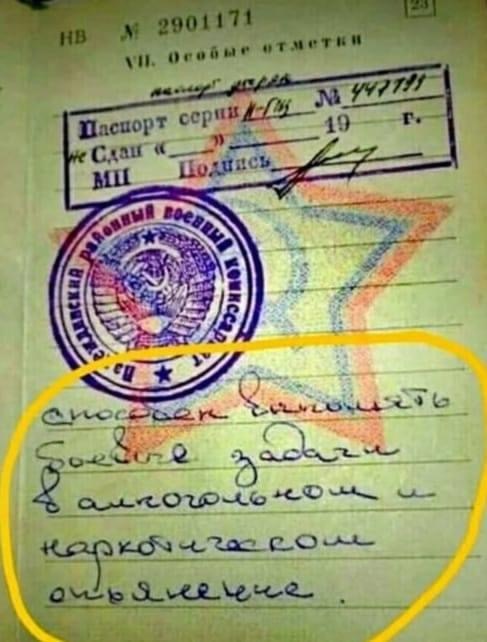 23
НВ № 2901171
VII. Особые отметки
паспорт утерян
Паспорт серии II-ГЩ № 447199
не Сдан «___»________ 19 г.
МП Подпись
районный военный комиссариат
способен выполнять
боевые задачи
в алкогольном и
наркотическом
опьянение.